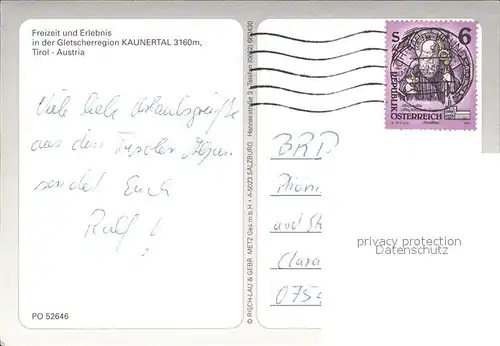 Freizeit und Erlebnis
in der Gletscherregion KAUNERTAL 3160m,
Tirol - Austria
Viele liebe Urlaubsgrüße
aus den Tiroler Alpen
sendet Euch
Ralf
PO 52646
© RISCH-LAU & GEBR. METZ Ges.m.b.H. · A-5023 SALZBURG
S 6
REPUBLIK
ÖSTERREICH
BRD
und
Clara
075
privacy protection
Datenschutz